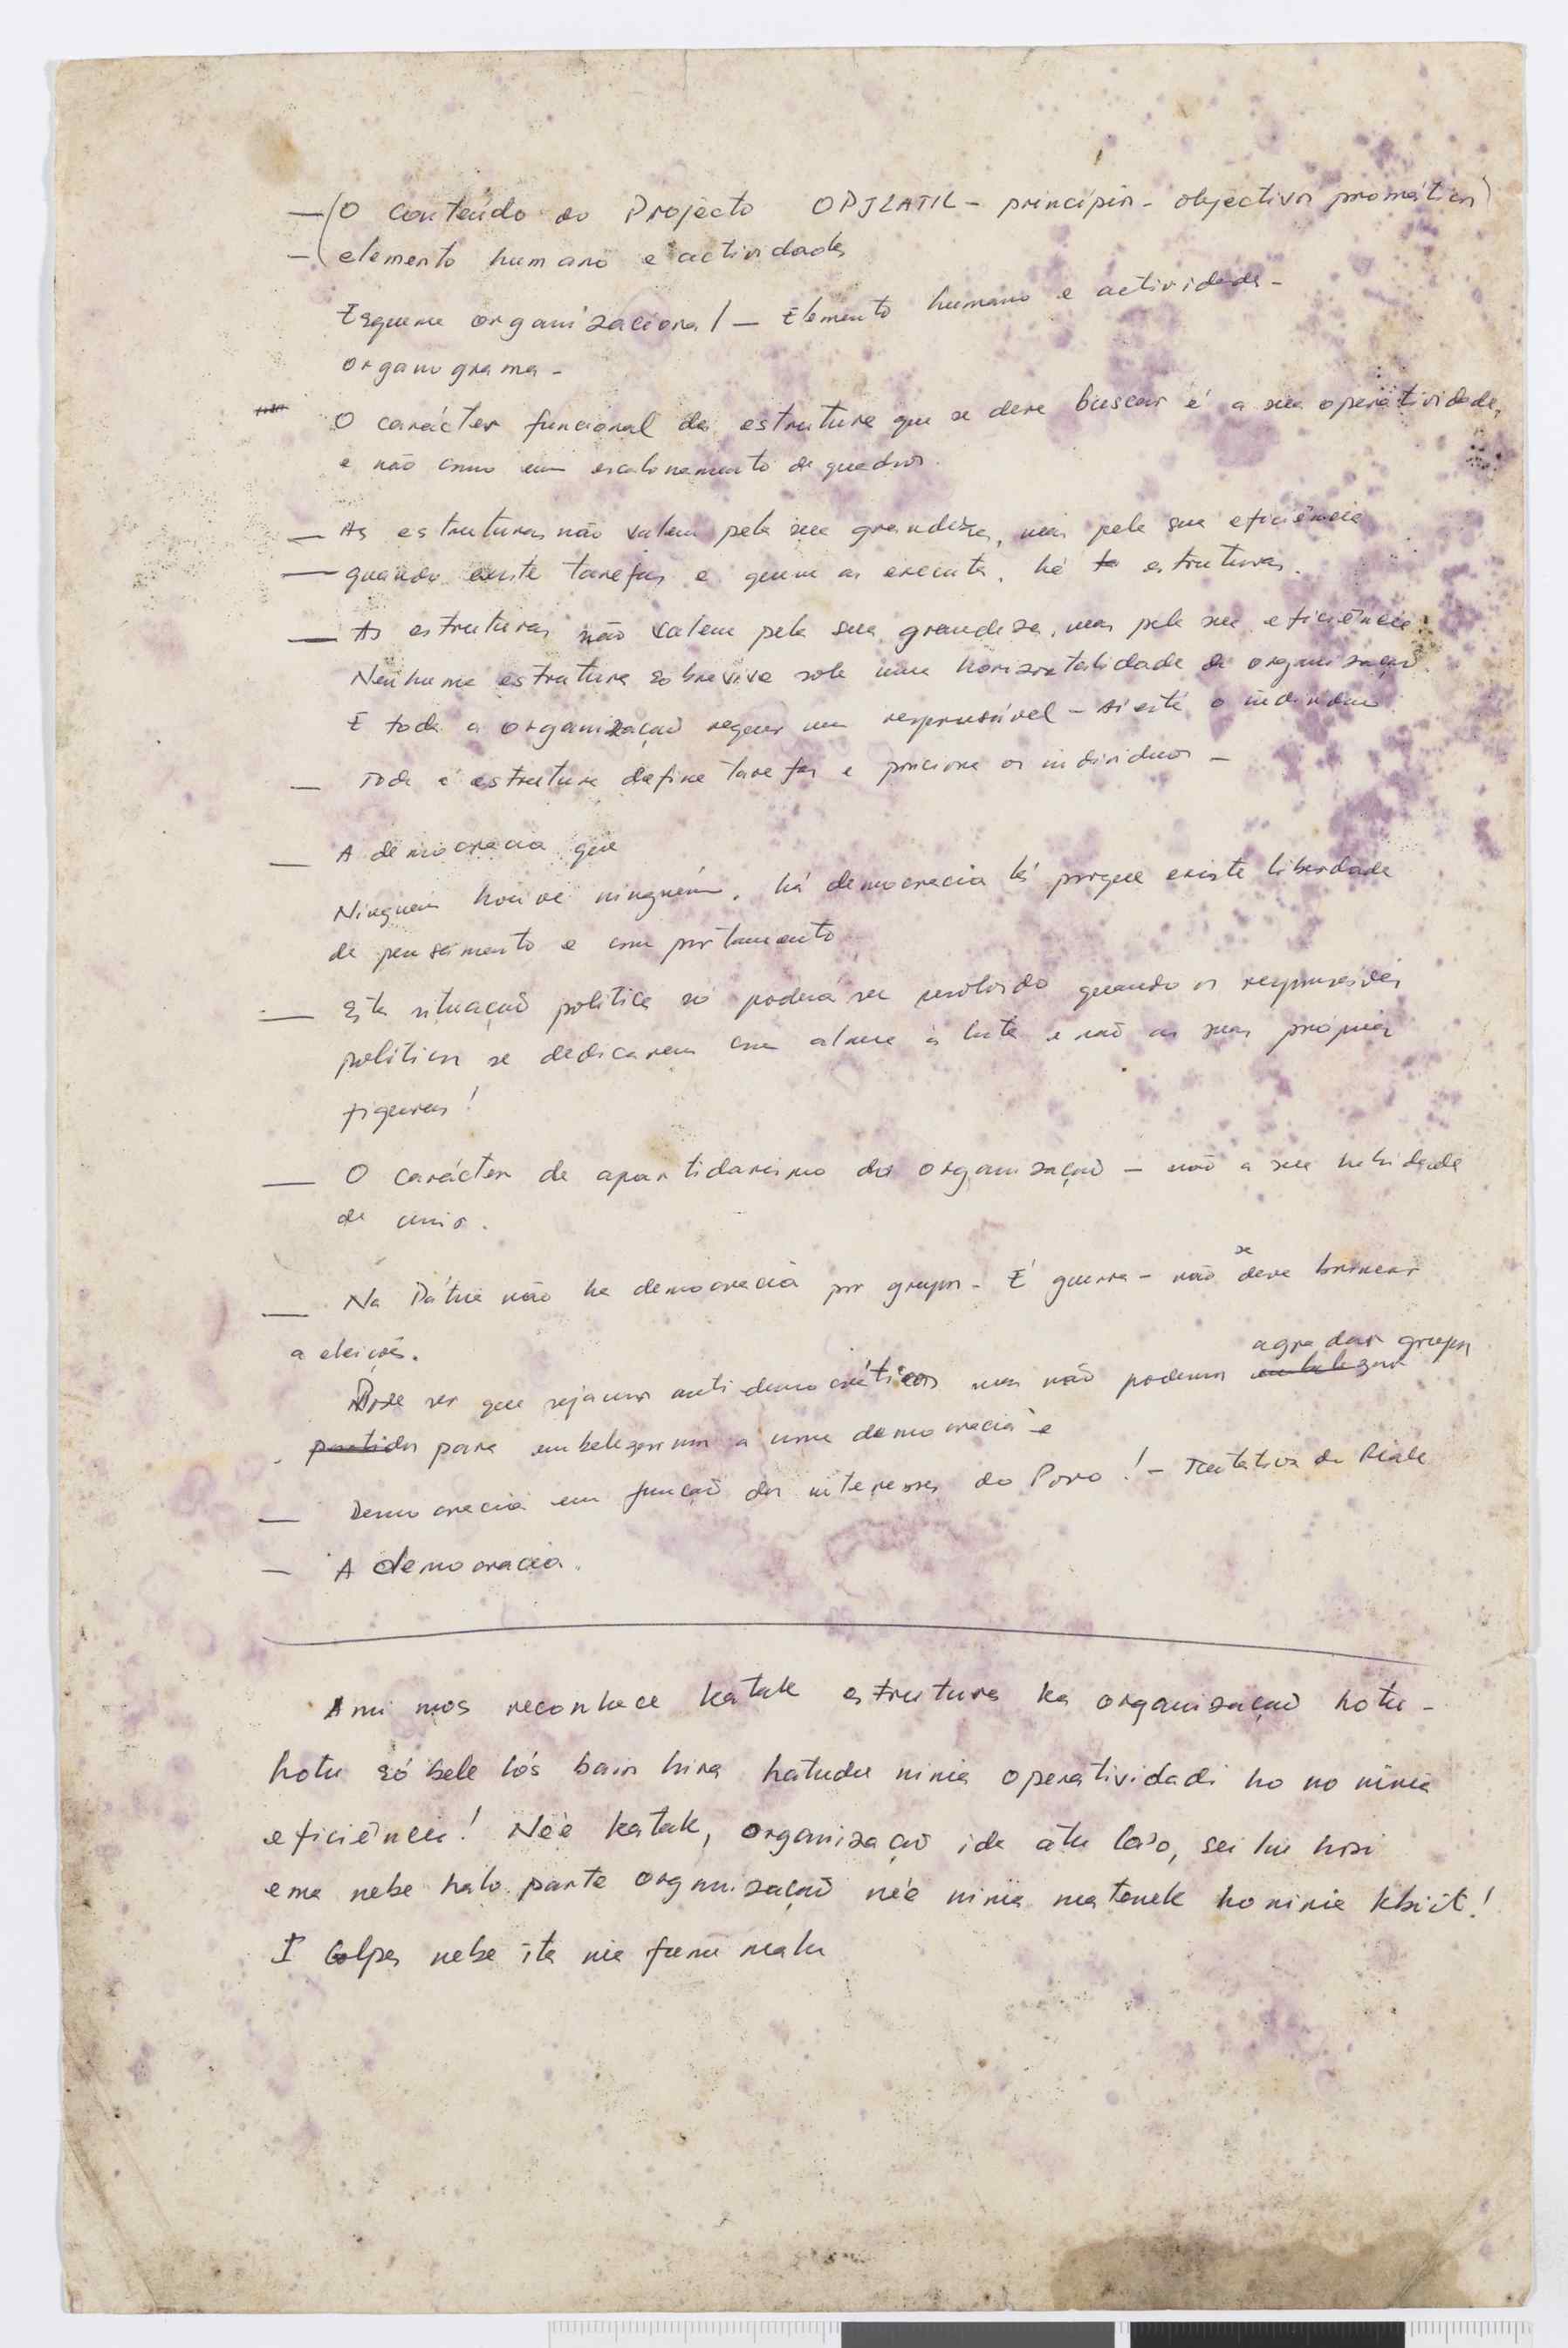 — (O conteúdo do Projecto OPJLATIL - princípios - objectivos
— elemento humano e actividades
Esquema organizacional — Elemento humano e actividade -
organograma -
O carácter funcional da estrutura que se deve buscar é a sua operatividade,
e não como um escalonamento de quadros.
— As estruturas não valem pela sua grandeza, mas pela sua eficiência
— quando existe tarefas e quem as executa, há estruturas.
— As estruturas não valem pela sua grandeza, mas pela sua eficiência
Nenhuma estrutura sobrevive sob uma horizontalidade de organização.
E toda a organização requer um responsável - Aí está o
— Toda a estrutura define tarefas e posiciona os individuos -
— A democracia que
Ninguém houve ninguém, há democracia lá porque existe liberdade
de pensamento e comportamento
— Esta situação politica só poderá ser resolvido quando os responsáveis
politicos se dedicarem com alma à luta e não as suas próprias
figuras!
— O carácter de apartidarismo da organização - não a sua
de unir.
— Na Pátria não ha democracia por grupos - É guerra - não se deve brincar
a eleições.
Pode ser que sejamos antidemocráticos mas não podemos agradar grupos
partidos para embelezarmos a uma democracia e
— Democracia em função dos interesses do Povo! - Tentativa de
— A democracia.
Ami mos reconhece katak estrutura ka organização hotu -
hotu só bele lós bain hira hatudu ninia operatividadi ho no ninia
eficiência! Ne'e katak, organização ida atu la'o, sei hu hosi
ema nebe halo parte organização ne'e ninia matenek ho ninia kbiit!
I Golpes nebe ita nia funu malu